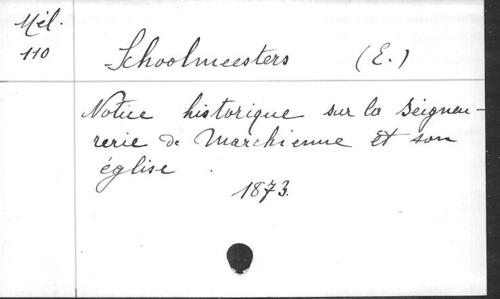 Mél.
110
Schoolmeesters (E.)
Notice historique sur la seigneu-
rerie de Marchienne et son
église.
1873.